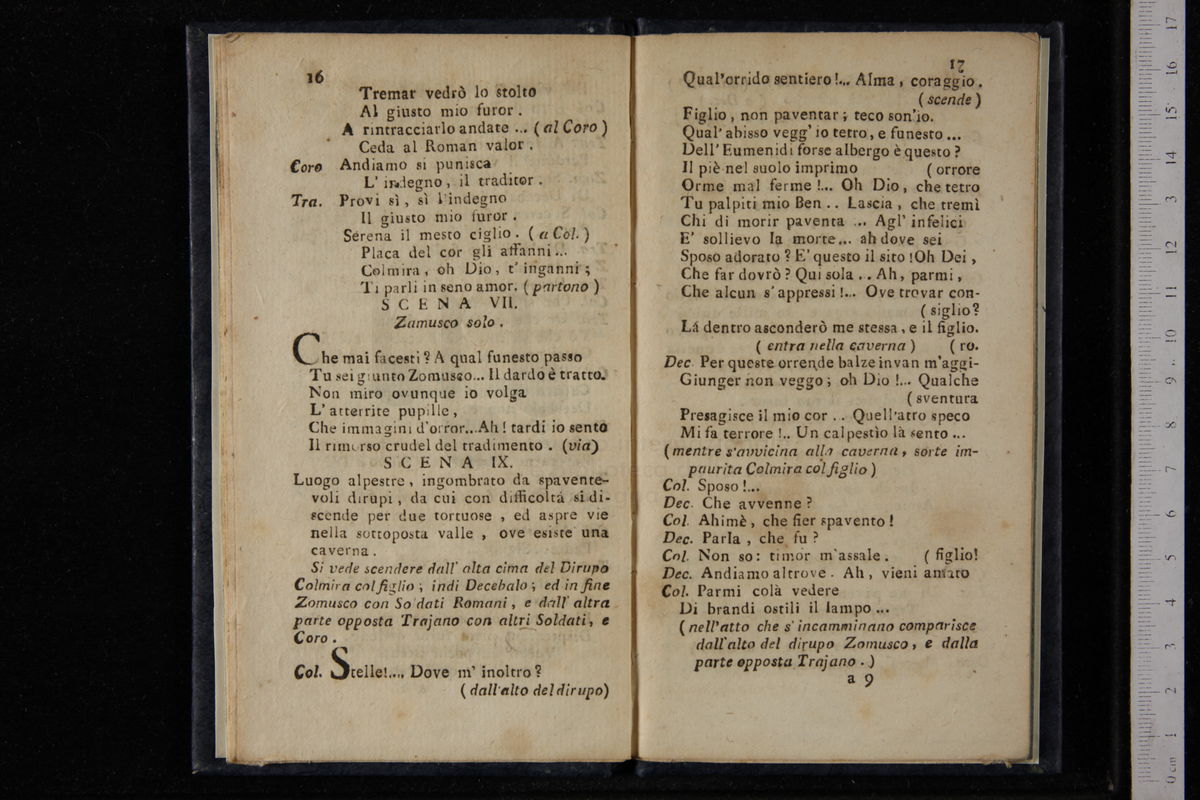 16
Tremar vedrò lo stolto
Al giusto mio furor .
A rintracciarlo andate ... ( al Coro )
Ceda al Roman valor .
Coro Andiamo si punisca
L' indegno , il traditor .
Tra. Provi sì , sì l'indegno
Il giusto mio furor .
Serena il mesto ciglio . ( a Col. )
Placa del cor gli affanni...
Colmira , oh Dio, t' inganni ;
Ti parli in seno amor. ( partono )
S C E N A VII.
Zamusco solo .
Che mai facesti ? A qual funesto passo
Tu sei giunto Zomusco... Il dardo è tratto.
Non miro ovunque io volga
L' atterrite pupille ,
Che immagini d'orror...Ah ! tardi io sento
Il rimorso crudel del tradimento . (via)
S C E N A IX.
Luogo alpestre , ingombrato da spavente-
voli dirupi , da cui con difficoltá si di-
scende per due tortuose , ed aspre vie
nella sottoposta valle , ove esiste una
caverna .
Si vede scendere dall' alta cima del Dirupo
Colmira col figlio ; indi Decebalo ; ed in fine
Zomusco con Soldati Romani , e dall' altra
parte opposta Trajano con altri Soldati , e
Coro .
Col. Stelle!.... Dove m' inoltro ?
( dall'alto del dirupo)
17
Qual'orrido sentiero !... Alma , coraggio .
( scende )
Figlio , non paventar ; teco son'io.
Qual' abisso vegg' io tetro , e funesto ...
Dell' Eumenidi forse albergo è questo ?
Il piè nel suolo imprimo ( orrore
Orme mal ferme !... Oh Dio , che tetro
Tu palpiti mio Ben . . Lascia , che tremi
Chi di morir paventa ... Agl' infelici
E' sollievo la morte... ah dove sei
Sposo adorato ? E' questo il sito ! Oh Dei ,
Che far dovrò ? Qui sola . . Ah , parmi ,
Che alcun s' appressi !... Ove trovar con-
( siglio?
Lá dentro asconderò me stessa , e il figlio.
( entra nella caverna ) ( ro.
Dec. Per queste orrende balze invan m'aggi-
Giunger non veggo ; oh Dio !... Qualche
( sventura
Presagisce il mio cor . . Quell'atro speco
Mi fa terrore !.. Un calpestìo là sento ...
(mentre s'avvicina alla caverna , sorte im-
paurita Colmira col figlio )
Col. Sposo !...
Dec. Che avvenne ?
Col. Ahimè , che fier spavento !
Dec. Parla , che fu ?
Col. Non so : timor m'assale . ( figlio!
Dec. Andiamo altrove . Ah , vieni amato
Col. Parmi colà vedere
Di brandi ostili il lampo ...
( nell'atto che s' incamminano comparisce
dall'alto del dirupo Zomusco , e dalla
parte opposta Trajano . )
a 9
0 cm 1 2 3 4 5 6 7 8 9 10 11 12 13 14 15 16 17